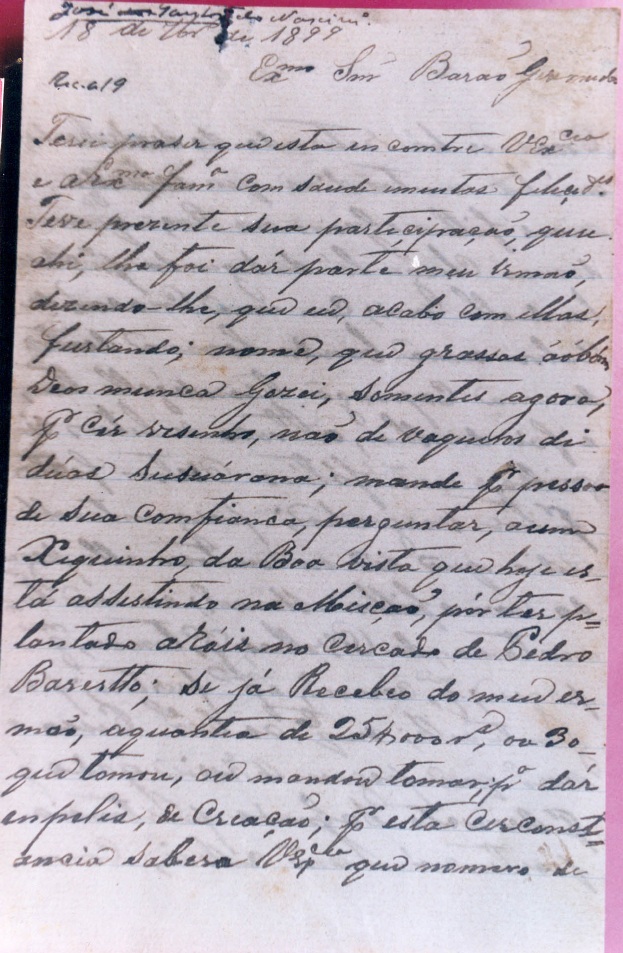 José do Nascimº
18 de 7br de 1899
Exmo Snr Barão Geremoabo
Terei praser que esta encontre VExcia
e a Exma Famª com saude emuitas felicd.es
Teve prezente sua participação, que
ahi, lhe foi dár parte meu irmaõ,
dizendo-lhe, que eu, acabo com ellas,
furtando; nome, que grassas áobom
Deos munca Gozei, somentes agora,
pr cêr vesinho, naõ de vaqueiros di
duas Susuárana; mande pr pessoa
de sua comfianca, perguntar, aum
Xiquinho, da Boa vista que hoje es-
tá assestindo na Moiçaõ, pór ter p-
lantado aRóis no Cercado de Pedro
Baretto; se já Recebeo do meu er-
maõ, aquantia de 25#000 rs, ou 30-,
que tomou, ou mandou tomar, pª dár
enpelis, de Creaçaõ; pr esta Cerconst-
ancia sabera VExcia que nomero de